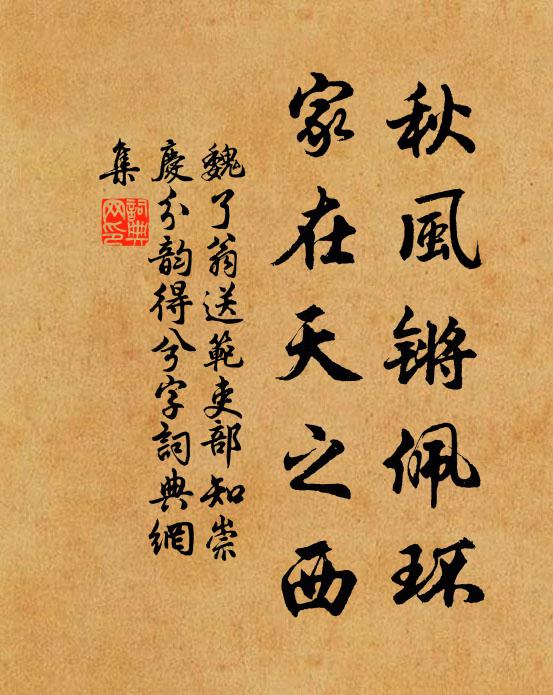 秋風锵佩环
家在天之西
魏了翁送範吏部知崇
慶分韵得兮字詞典網
集
詞典網印